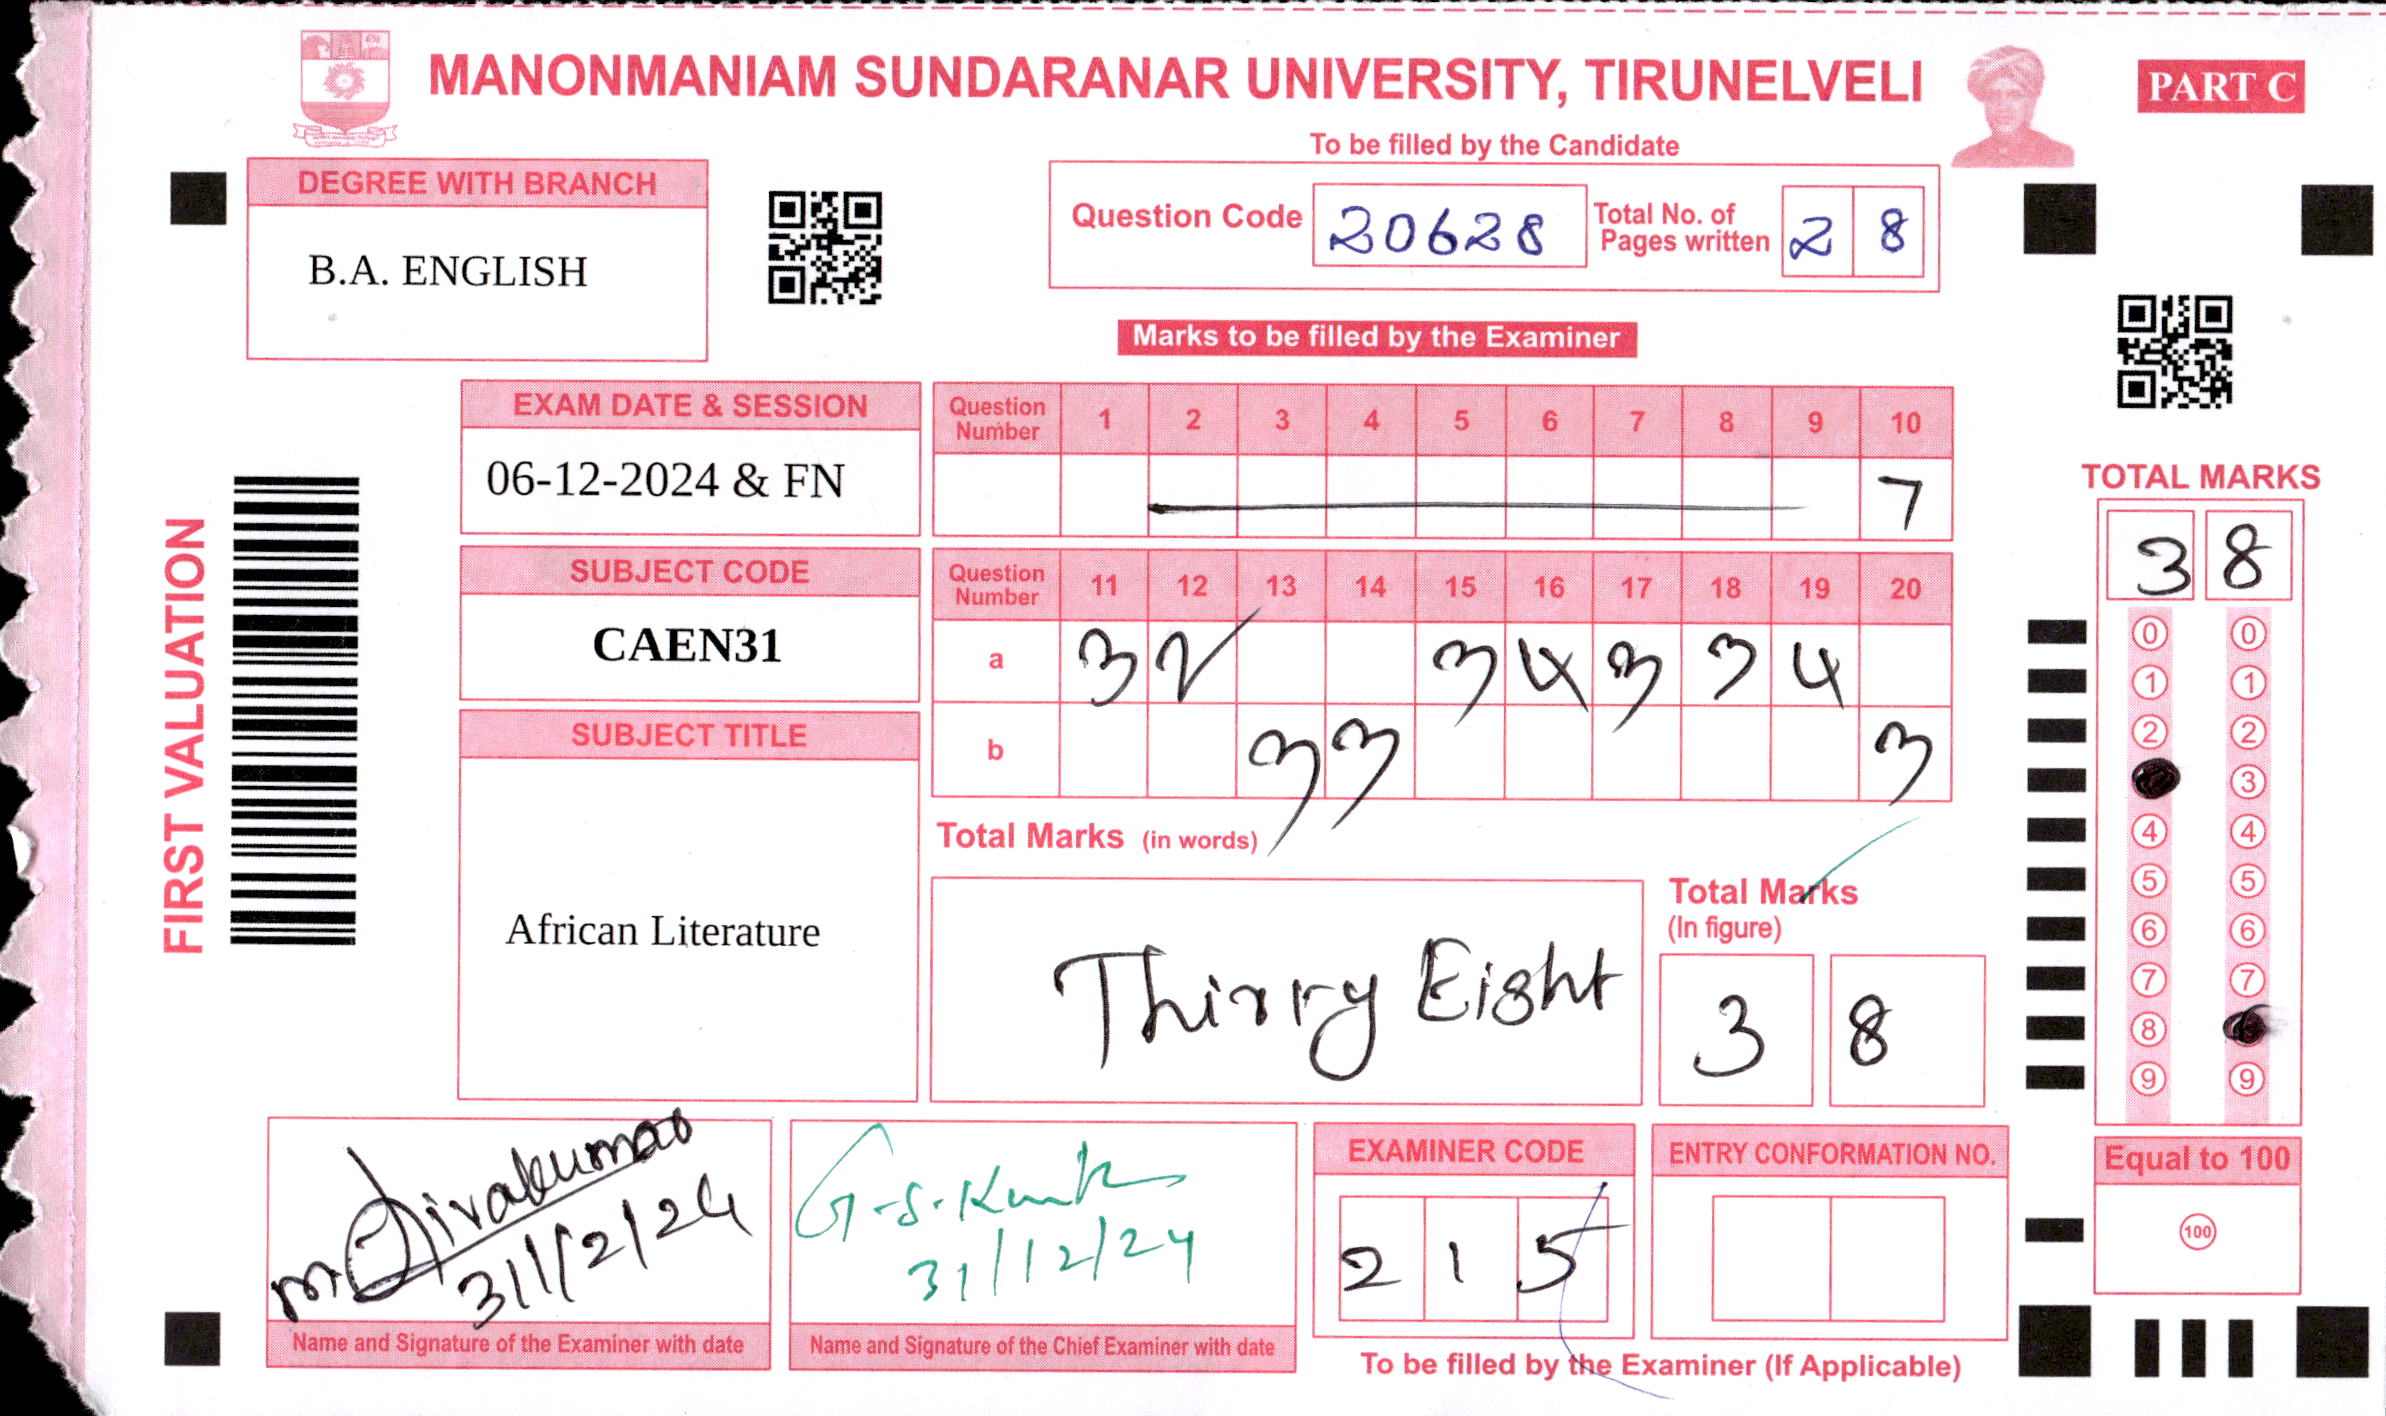 MANONMANIAM SUNDARANAR UNIVERSITY, TIRUNELVELI
PART C
To be filled by the Candidate
DEGREE WITH BRANCH
B.A. ENGLISH
Question Code 20628 Total No. of Pages written 2 8
Marks to be filled by the Examiner
EXAM DATE & SESSION
06-12-2024 & FN
Question Number 1 2 3 4 5 6 7 8 9 10
7
SUBJECT CODE
CAEN31
Question Number 11 12 13 14 15 16 17 18 19 20
a 3 2 3 4 3 3 4
b 3 3 3
SUBJECT TITLE
African Literature
Total Marks (in words)
Thirty Eight
Total Marks (In figure)
3 8
FIRST VALUATION
TOTAL MARKS
3 8
0 0
1 1
2 2
3
4 4
5 5
6 6
7 7
8
9 9
Equal to 100
100
31/12/24
Name and Signature of the Examiner with date
31/12/24
Name and Signature of the Chief Examiner with date
EXAMINER CODE
2 1 5
ENTRY CONFORMATION NO.
To be filled by the Examiner (If Applicable)